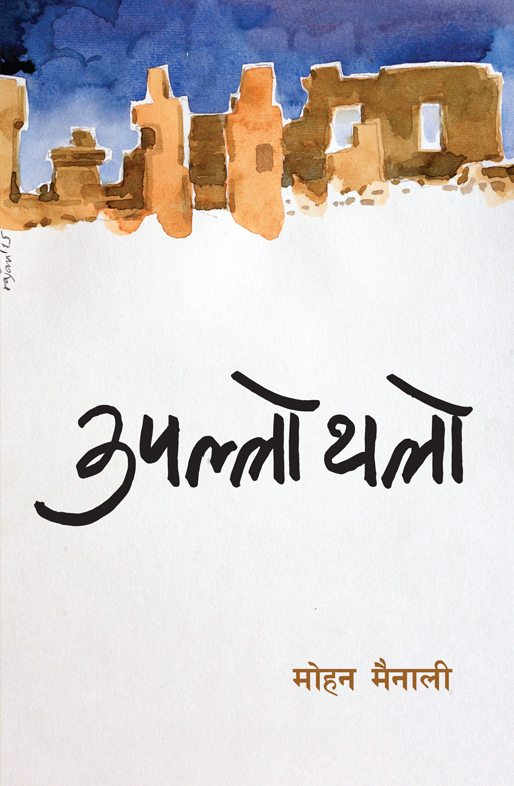 rajan'15
उपल्लो थलो
मोहन मैनाली